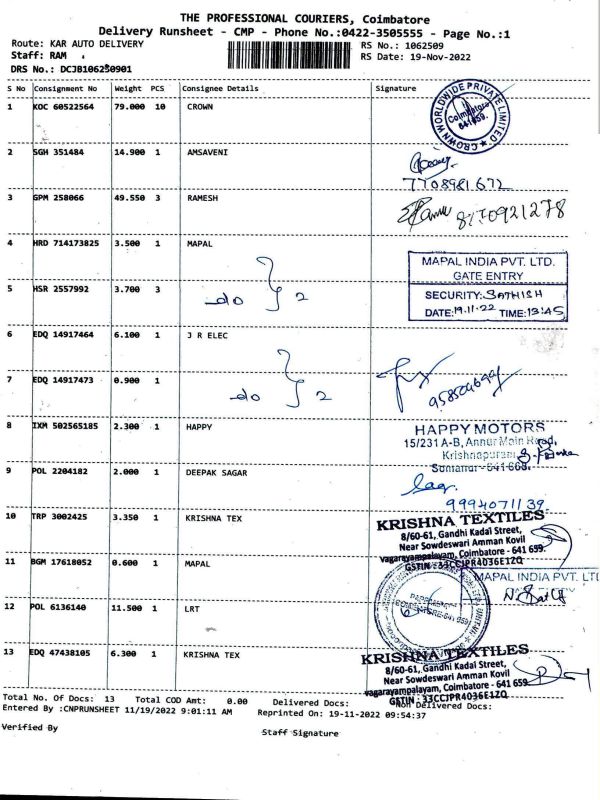 THE PROFESSIONAL COURIERS, Coimbatore
Delivery Runsheet - CMP - Phone No.:0422-3505555 - Page No.:1
Route: KAR AUTO DELIVERY
RS No.: 1062509
Staff: RAM
RS Date: 19-Nov-2022
DRS No.: DCJB106250901
S No Consignment No Weight PCS Consignee Details Signature
1 KOC 60522564 79.000 10 CROWN
CROWN WORLDWIDE PRIVATE LIMITED
Coimbatore
641659.
2 SGH 351484 14.900 1 AMSAVENI
7708981672
3 GPM 258066 49.550 3 RAMESH
8270921278
4 HRD 714173825 3.500 1 MAPAL
MAPAL INDIA PVT. LTD.
GATE ENTRY
5 HSR 2557992 3.700 3
do } 2
SECURITY: SATHISH
DATE: 19.11.22 TIME: 13:45
6 EDQ 14917464 6.100 1 J R ELEC
7 EDQ 14917473 0.900 1
do } 2
8 IXM 502565185 2.300 1 HAPPY
HAPPY MOTORS
15/231 A-B, Annur Main Road,
Krishnapuram,
9 POL 2204182 2.000 1 DEEPAK SAGAR
Sagr.
9994071139.
10 TRP 3002425 3.350 1 KRISHNA TEX
KRISHNA TEXTILES
8/60-61, Gandhi Kadal Street,
Near Sowdeswari Amman Kovil
vagarayampalayam, Coimbatore - 641 659.
GSTIN : 33CCJPR4036E1ZQ
11 BGM 17618052 0.600 1 MAPAL
MAPAL INDIA PVT. LTD
12 POL 6136140 11.500 1 LRT
COIMBATORE-641 659
13 EDQ 47438105 6.300 1 KRISHNA TEX
KRISHNA TEXTILES
8/60-61, Gandhi Kadal Street,
Near Sowdeswari Amman Kovil
vagarayampalayam, Coimbatore - 641 659.
GSTIN : 33CCJPR4036E1ZQ
Total No. Of Docs: 13 Total COD Amt: 0.00 Delivered Docs: Non Delivered Docs:
Entered By :CNPRUNSHEET 11/19/2022 9:01:11 AM Reprinted On: 19-11-2022 09:54:37
Verified By
Staff Signature